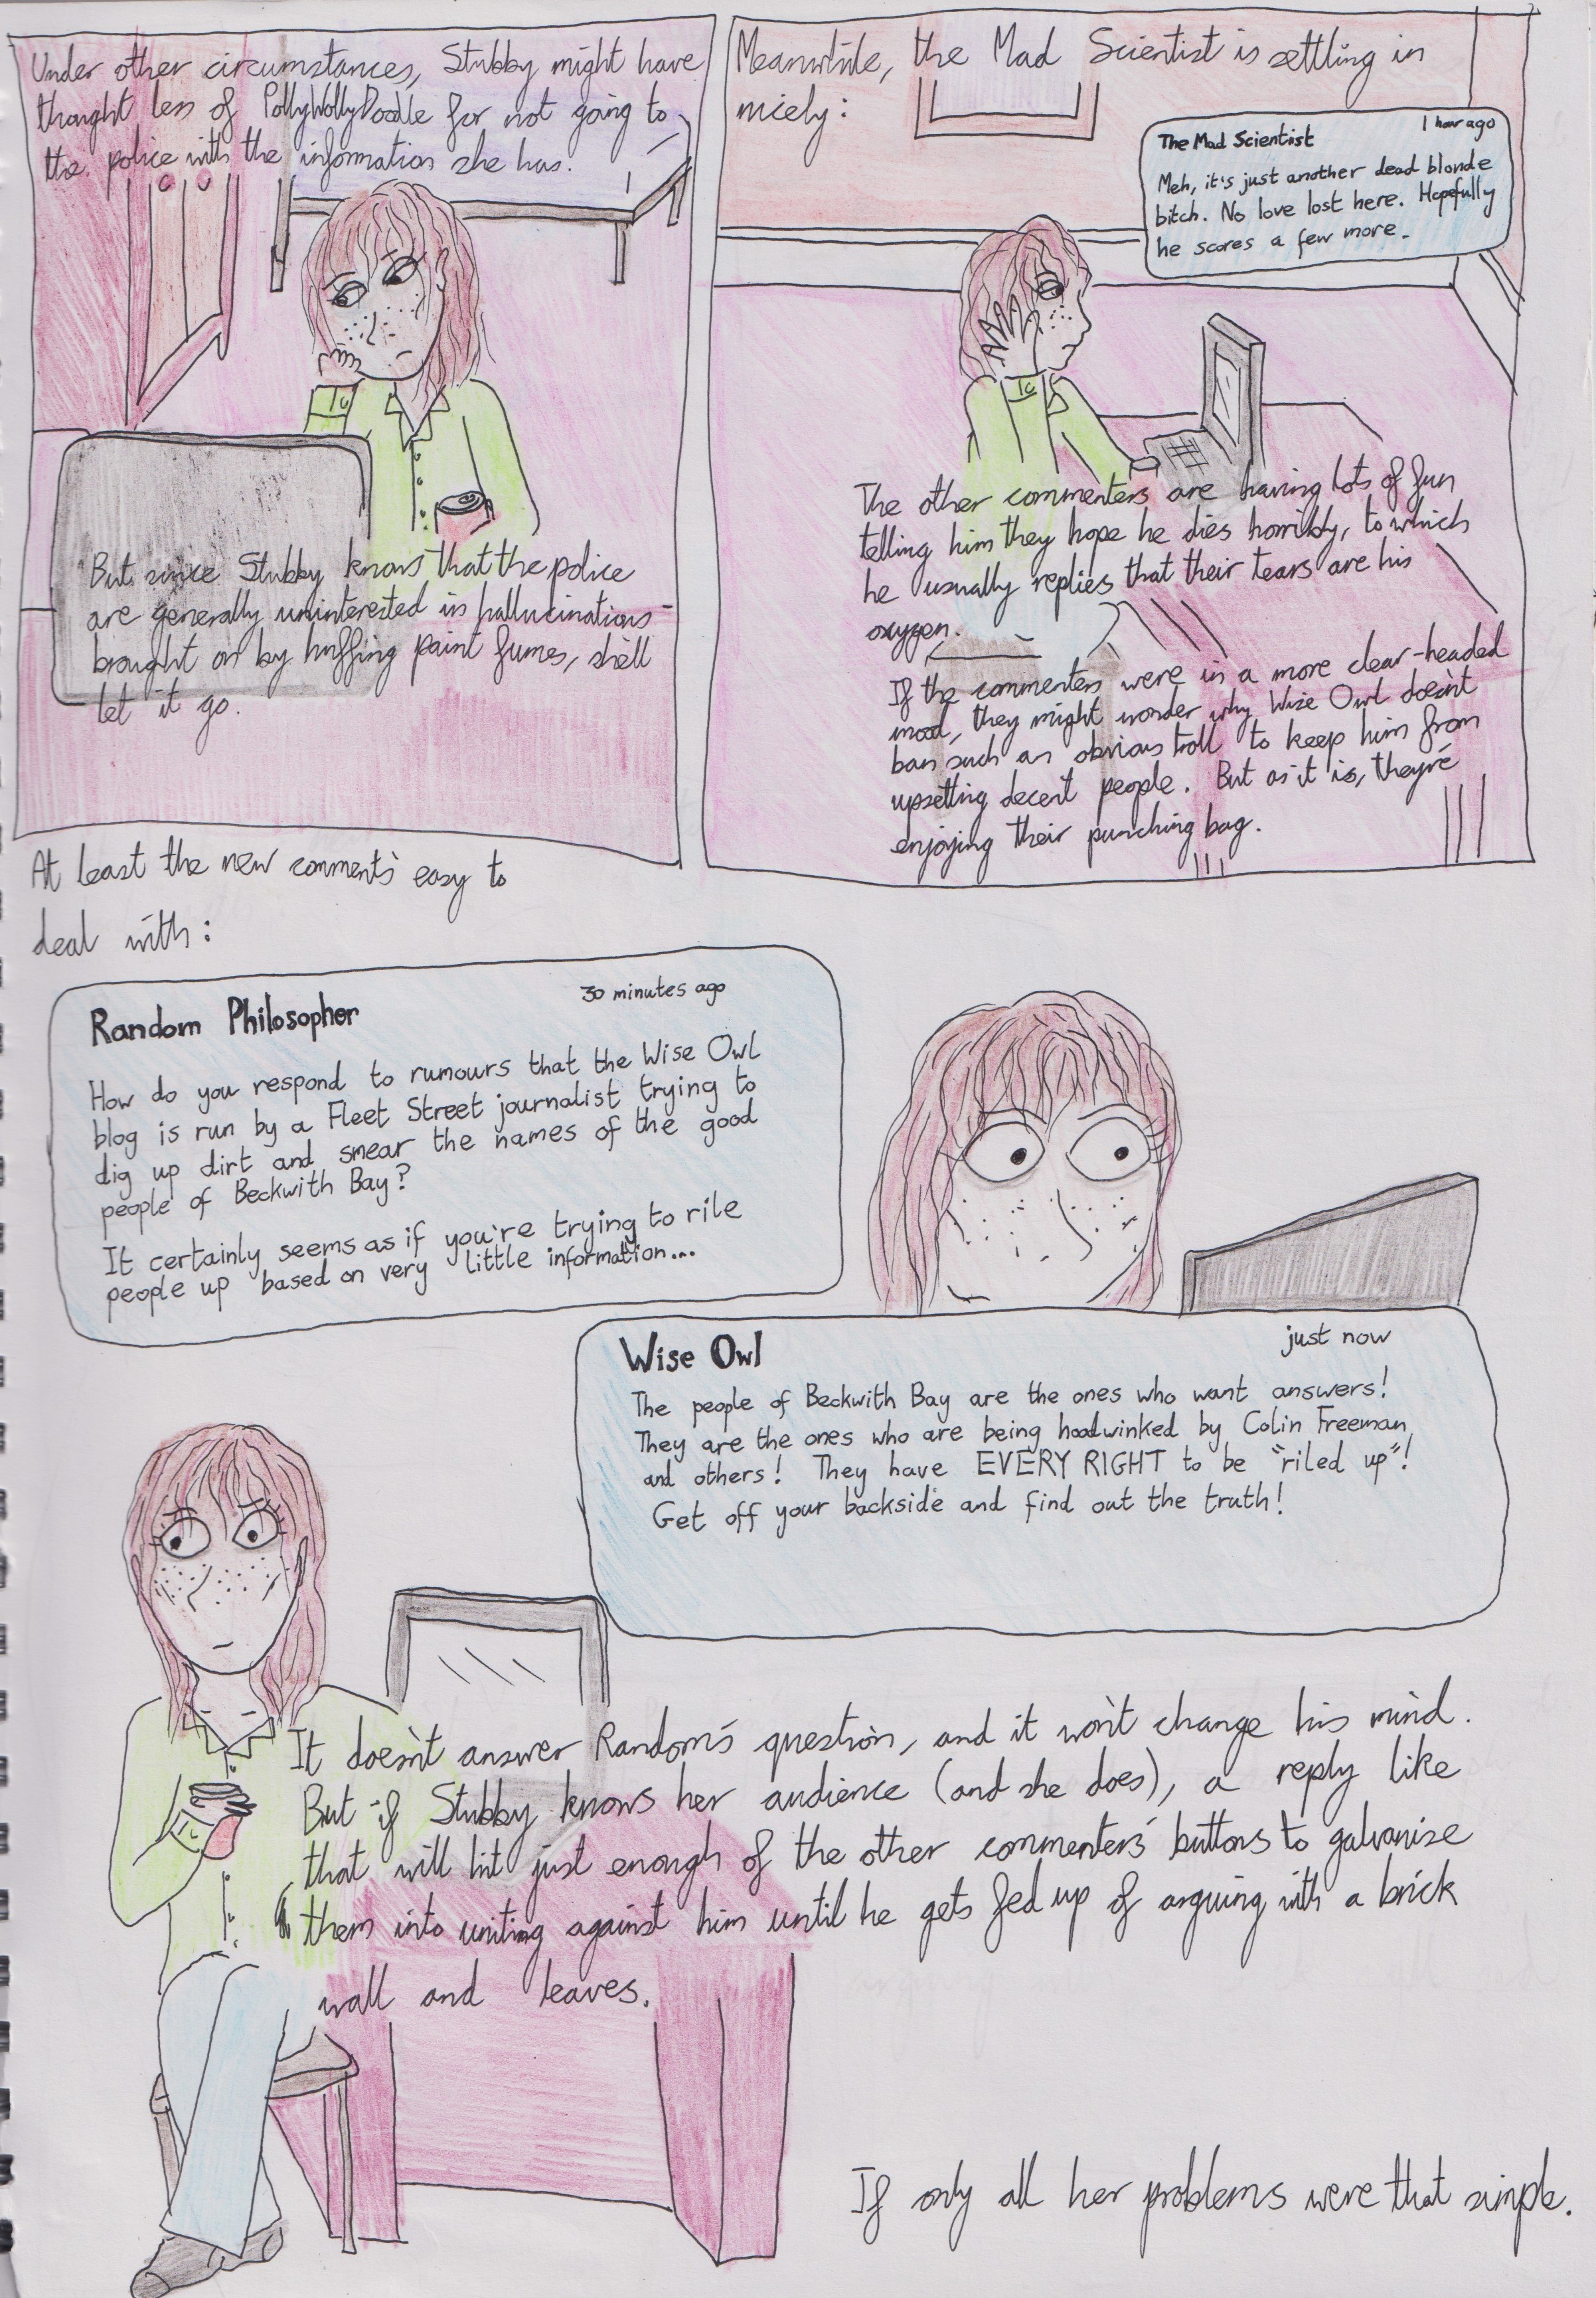 Under other circumstances, Stubby might have
thought less of PollyWollyDoodle for not going to
the police with the information she has.
But since Stubby knows that the police
are generally uninterested in hallucinations
brought on by huffing paint fumes, she'll
let it go.
Meanwhile, the Mad Scientist is settling in
nicely:
The Mad Scientist
1 hour ago
Meh, it's just another dead blonde
bitch. No love lost here. Hopefully
he scores a few more.
The other commenters are having lots of fun
telling him they hope he dies horribly, to which
he usually replies that their tears are his
oxygen.
If the commenters were in a more clear-headed
mood, they might wonder why Wise Owl doesn't
ban such an obvious troll to keep him from
upsetting decent people. But as it is, they're
enjoying their punching bag.
At least the new comment's easy to
deal with:
Random Philosopher
30 minutes ago
How do you respond to rumours that the Wise Owl
blog is run by a Fleet Street journalist trying to
dig up dirt and smear the names of the good
people of Beckwith Bay?
It certainly seems as if you're trying to rile
people up based on very little information...
Wise Owl
just now
The people of Beckwith Bay are the ones who want answers!
They are the ones who are being hoodwinked by Colin Freeman
and others! They have EVERY RIGHT to be "riled up"!
Get off your backside and find out the truth!
It doesn't answer Random's question, and it won't change his mind.
But if Stubby knows her audience (and she does), a reply like
that will hit just enough of the other commenters' buttons to galvanise
them into uniting against him until he gets fed up of arguing with a brick
wall and leaves.
If only all her problems were that simple.